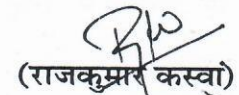 (राजकुमार कस्वा)